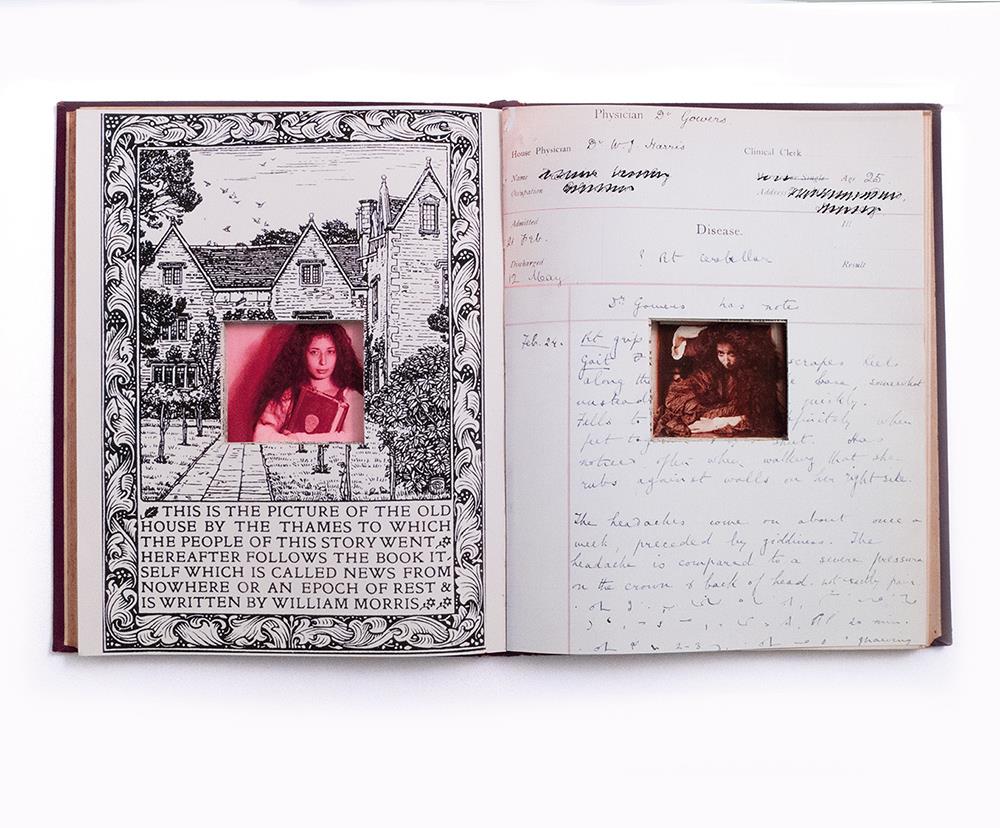 THIS IS THE PICTURE OF THE OLD
HOUSE BY THE THAMES TO WHICH
THE PEOPLE OF THIS STORY WENT
HEREAFTER FOLLOWS THE BOOK IT,
SELF WHICH IS CALLED NEWS FROM
NOWHERE OR AN EPOCH OF REST &
IS WRITTEN BY WILLIAM MORRIS
Physician Dr Gowers.
House Physician Dr W J Harris
Clinical Clerk
Name
Single Age 25
Occupation
Address
Admitted
Ill
21 Feb.
Disease.
Discharged
? Rt cerebellar
Result
12 May
Dr Gowers has note
Feb. 24. Rt grip
Gait scrapes heel
along the base, somewhat
unsteadi quickly.
Falls to definitely when
Has
notices often when walking that she
rubs against walls on her right side.
The headaches come on about once a
week, preceded by giddiness. The
headache is compared to a severe pressure
on the crown & back of head. not really pain
20 min.
2-3 gnawing